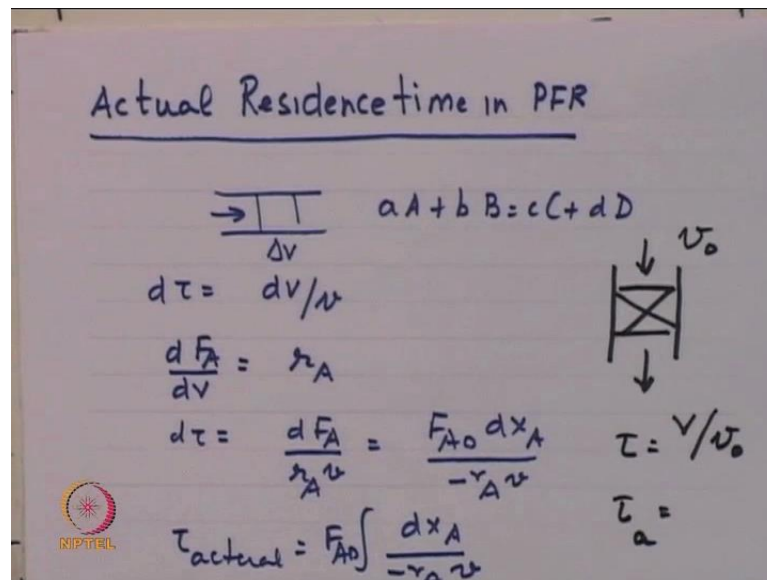 Actual Residence time in PFR
aA + bB = cC + dD
ΔV
v₀
dτ = dV/v
dF_A/dV = r_A
dτ = dF_A/(r_A v) = F_A0 dx_A/(-r_A v)
τ = V/v₀
τ_actual = F_A0 ∫ dx_A/(-r_A v)
τ_a =
NPTEL